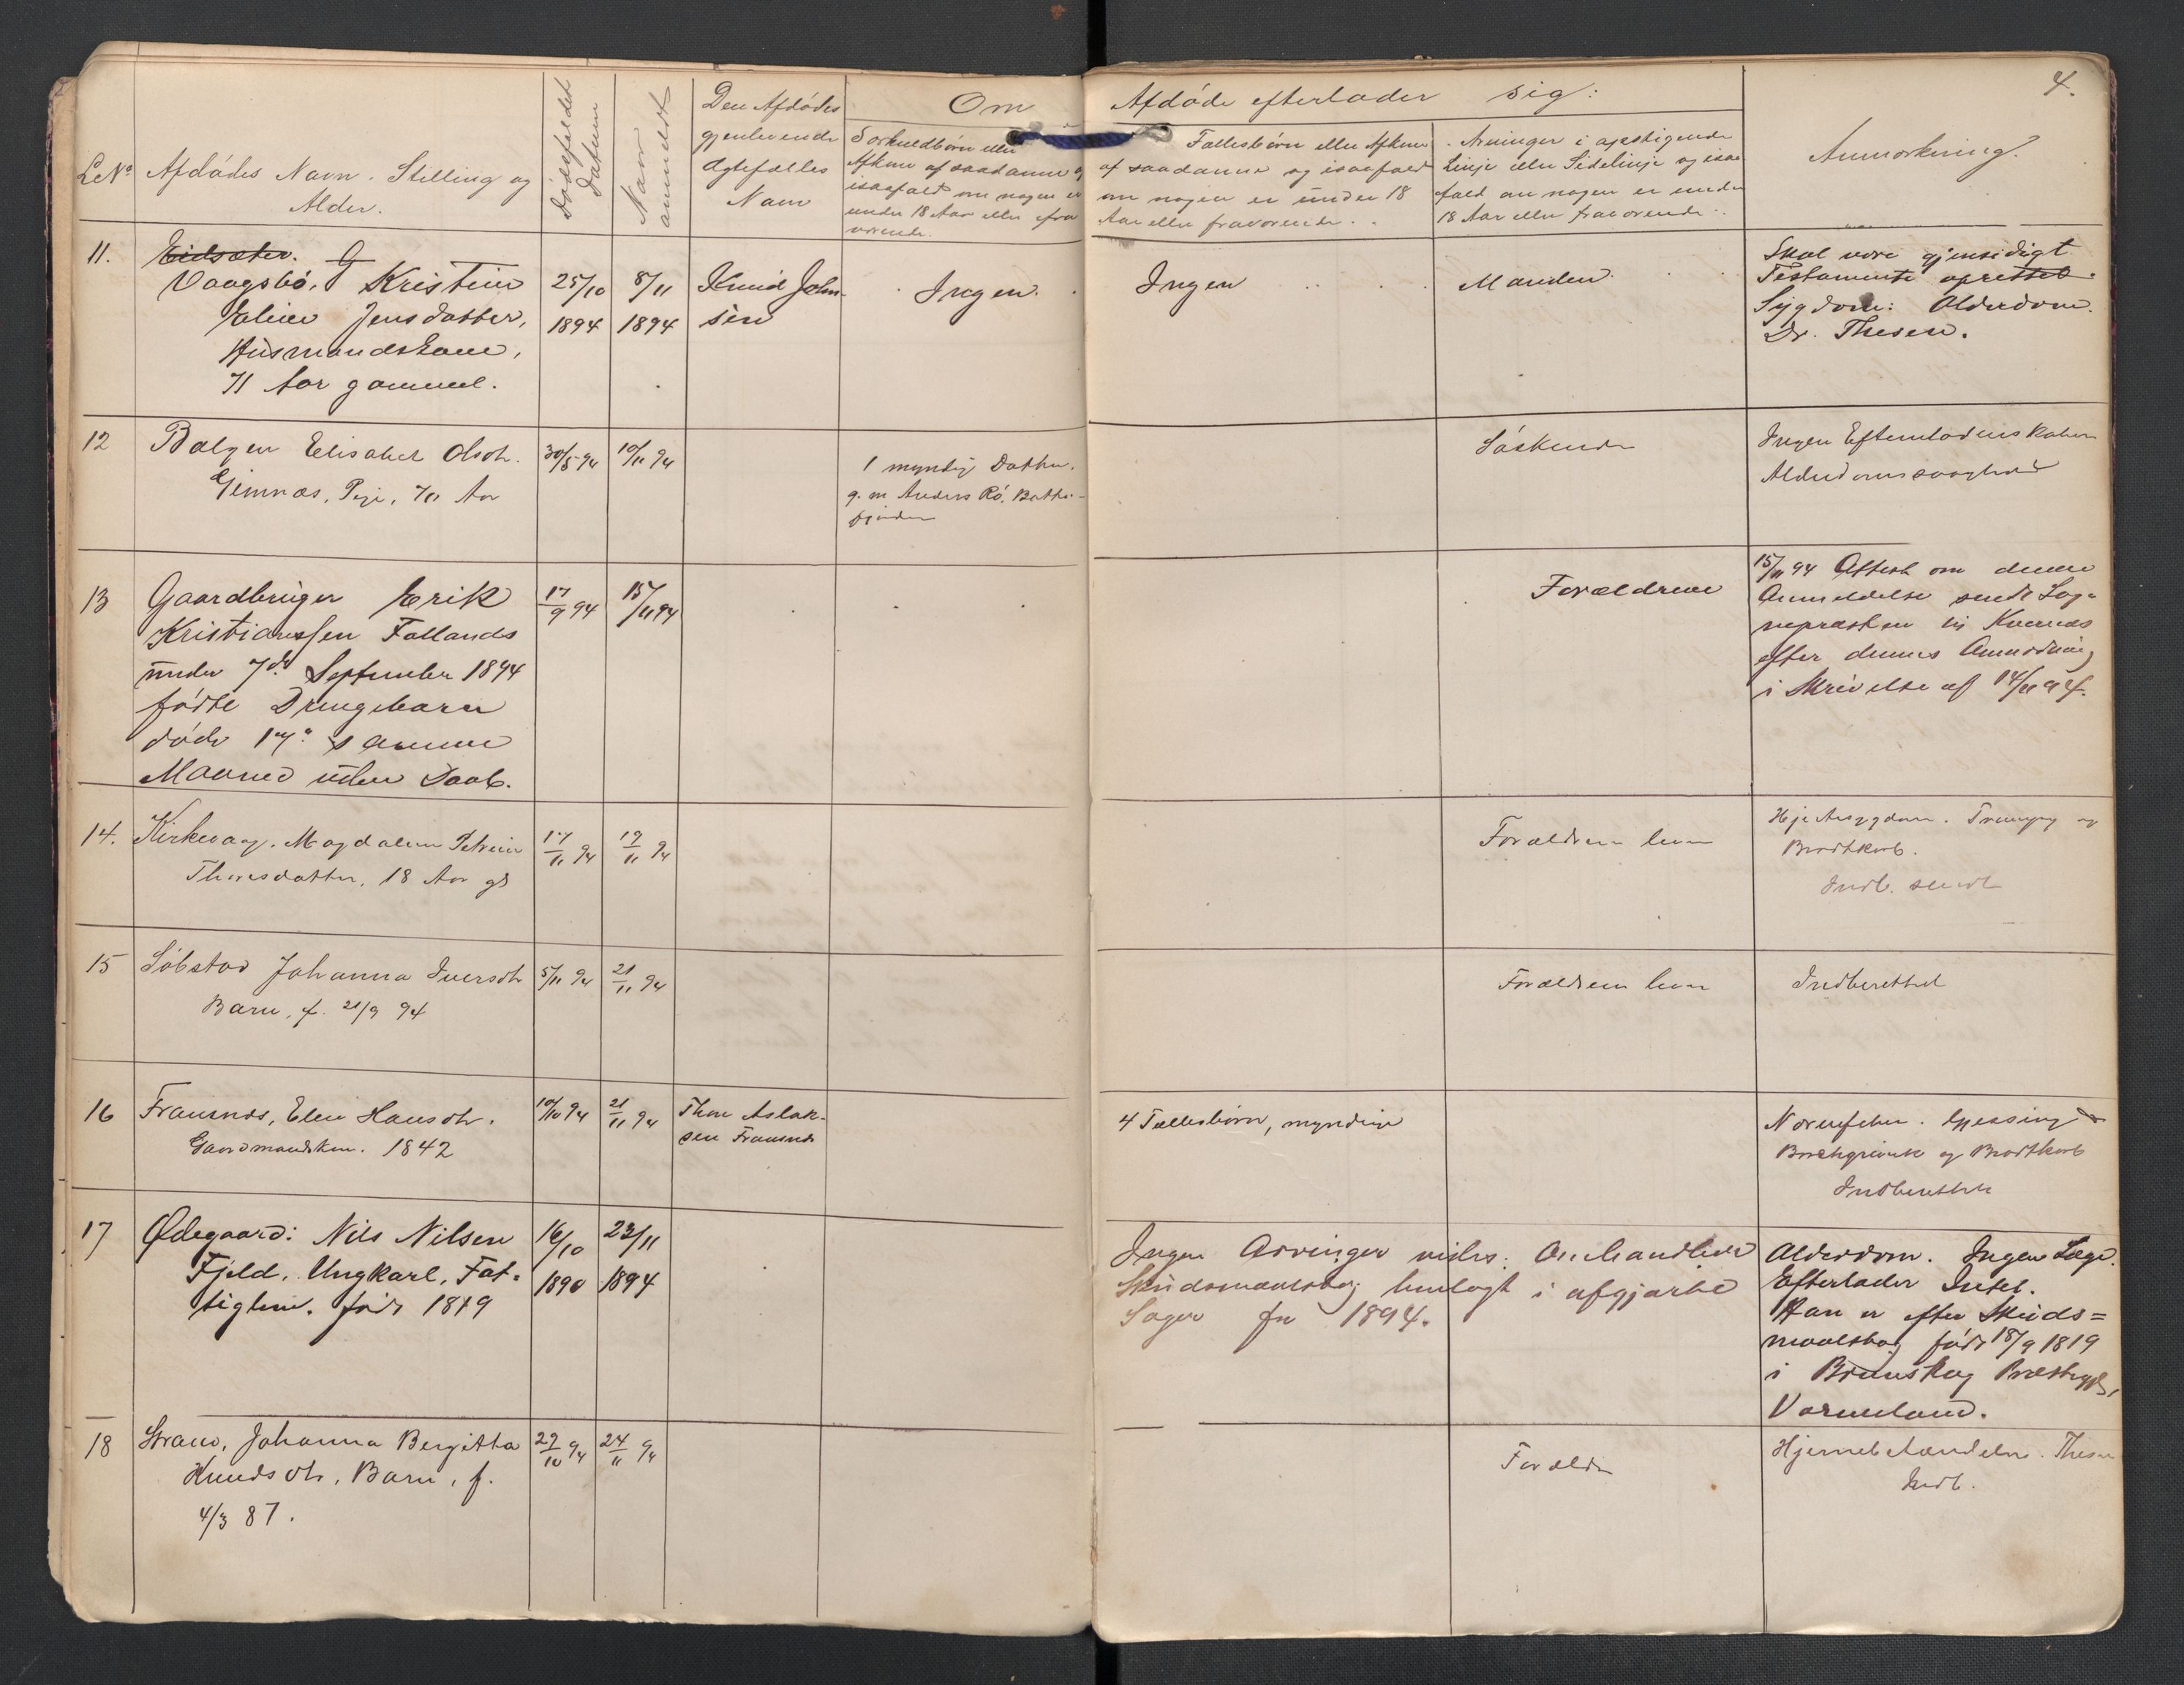 4.
LNo
Afdødes Navn. Stilling og
Alder.
Dødsfaldet
Datum
Naar
anmeldt
Den Afdødes
gjenlevende
Ægtefælles
Navn
Om Afdøde efterlader sig:
Særkuldbørn eller
Afkom af saadanne og
isaafald om nogen er
under 18 Aar eller fra
værende.
Fællesbørn eller Afkom
af saadanne og isaafald
om nogen er under 18
Aar eller fraværende.
Arvinger i opstigende
Linje eller Sidelinje og isaa
fald om nogen er under
18 Aar eller fraværende.
Anmærkning.
11.
Eidsæter. G
Vaagsbø, Kristine
Eline Jensdatter,
Husmandskone,
71 Aar gammel.
25/10
1894
8/11
1894
Knud John-
sen
Ingen.
Ingen
Manden.
Skal være gjensidigt
Testamente oprettet.
Sygdom: Alderdom.
Dr. Thesen.
12
Bolgen Elisabet Olsdt.
Gimnæs, Pige, 70 Aar
30/5 94
10/11 94
1 myndig Datter,
g. m. Anders Rø. Batn-
fjorden
Søskende
Ingen Efterladenskaber
Alderdomssvaghed
13
Gaardbruger Erik
Kristianssen Follands
under 7de September 1894
fødte Drengebarn
døde 17de samme
Maaned uden Daab.
17/9 94
15/11 94
Forældrene
15/11 94 Attest om denne
Anmeldelse sendt Sog-
nepræsten til Kvernes
efter dennes Anmodning
i Skrivelse af 14/11 94.
14.
Kirkevaag. Magdalena Petrine
Thoresdatter, 18 Aar gl
17/11 94
19/11 94
Forældrene lever
Hjertesygdom. og
Brodtkorb.
Indb. sendt
15
Løbstad Johanna Iversdtr
Barn, f. 21/9 94
5/11 94
21/11 94
Forældrene lever
Indberettet
16
Framnæs, Elen Hansdtr.
Gaardmandskone. 1842
10/10 94
21/11 94
Thore Aslak-
sen Framnæs
4 Fællesbørn, myndige
Nervefeber. Gjessing
Borchgrevink og Brodtkorb
Indberettet
17
Ødegaard: Nils Nilsen
Fjeld. Ungkarl, Fat-
tiglem. født 1819
16/10
1890
23/11
1894
Ingen Arvinger vides. Omhandlede
Skudsmaalsbog henlagt i afgjorte
Sager for 1894.
Alderdom. Ingen Læge.
Efterlader Intet.
Han er efter Skuds=
maalsbog født 18/9 1819
i Brunskog Præstegjeld,
Vermeland.
18
Strand, Johanna Bergitha
Knudsdtr, Barn, f.
4/3 87.
29/10 94
24/11 94
Forældre
Hjernebetændelse. Thesen
Indb.